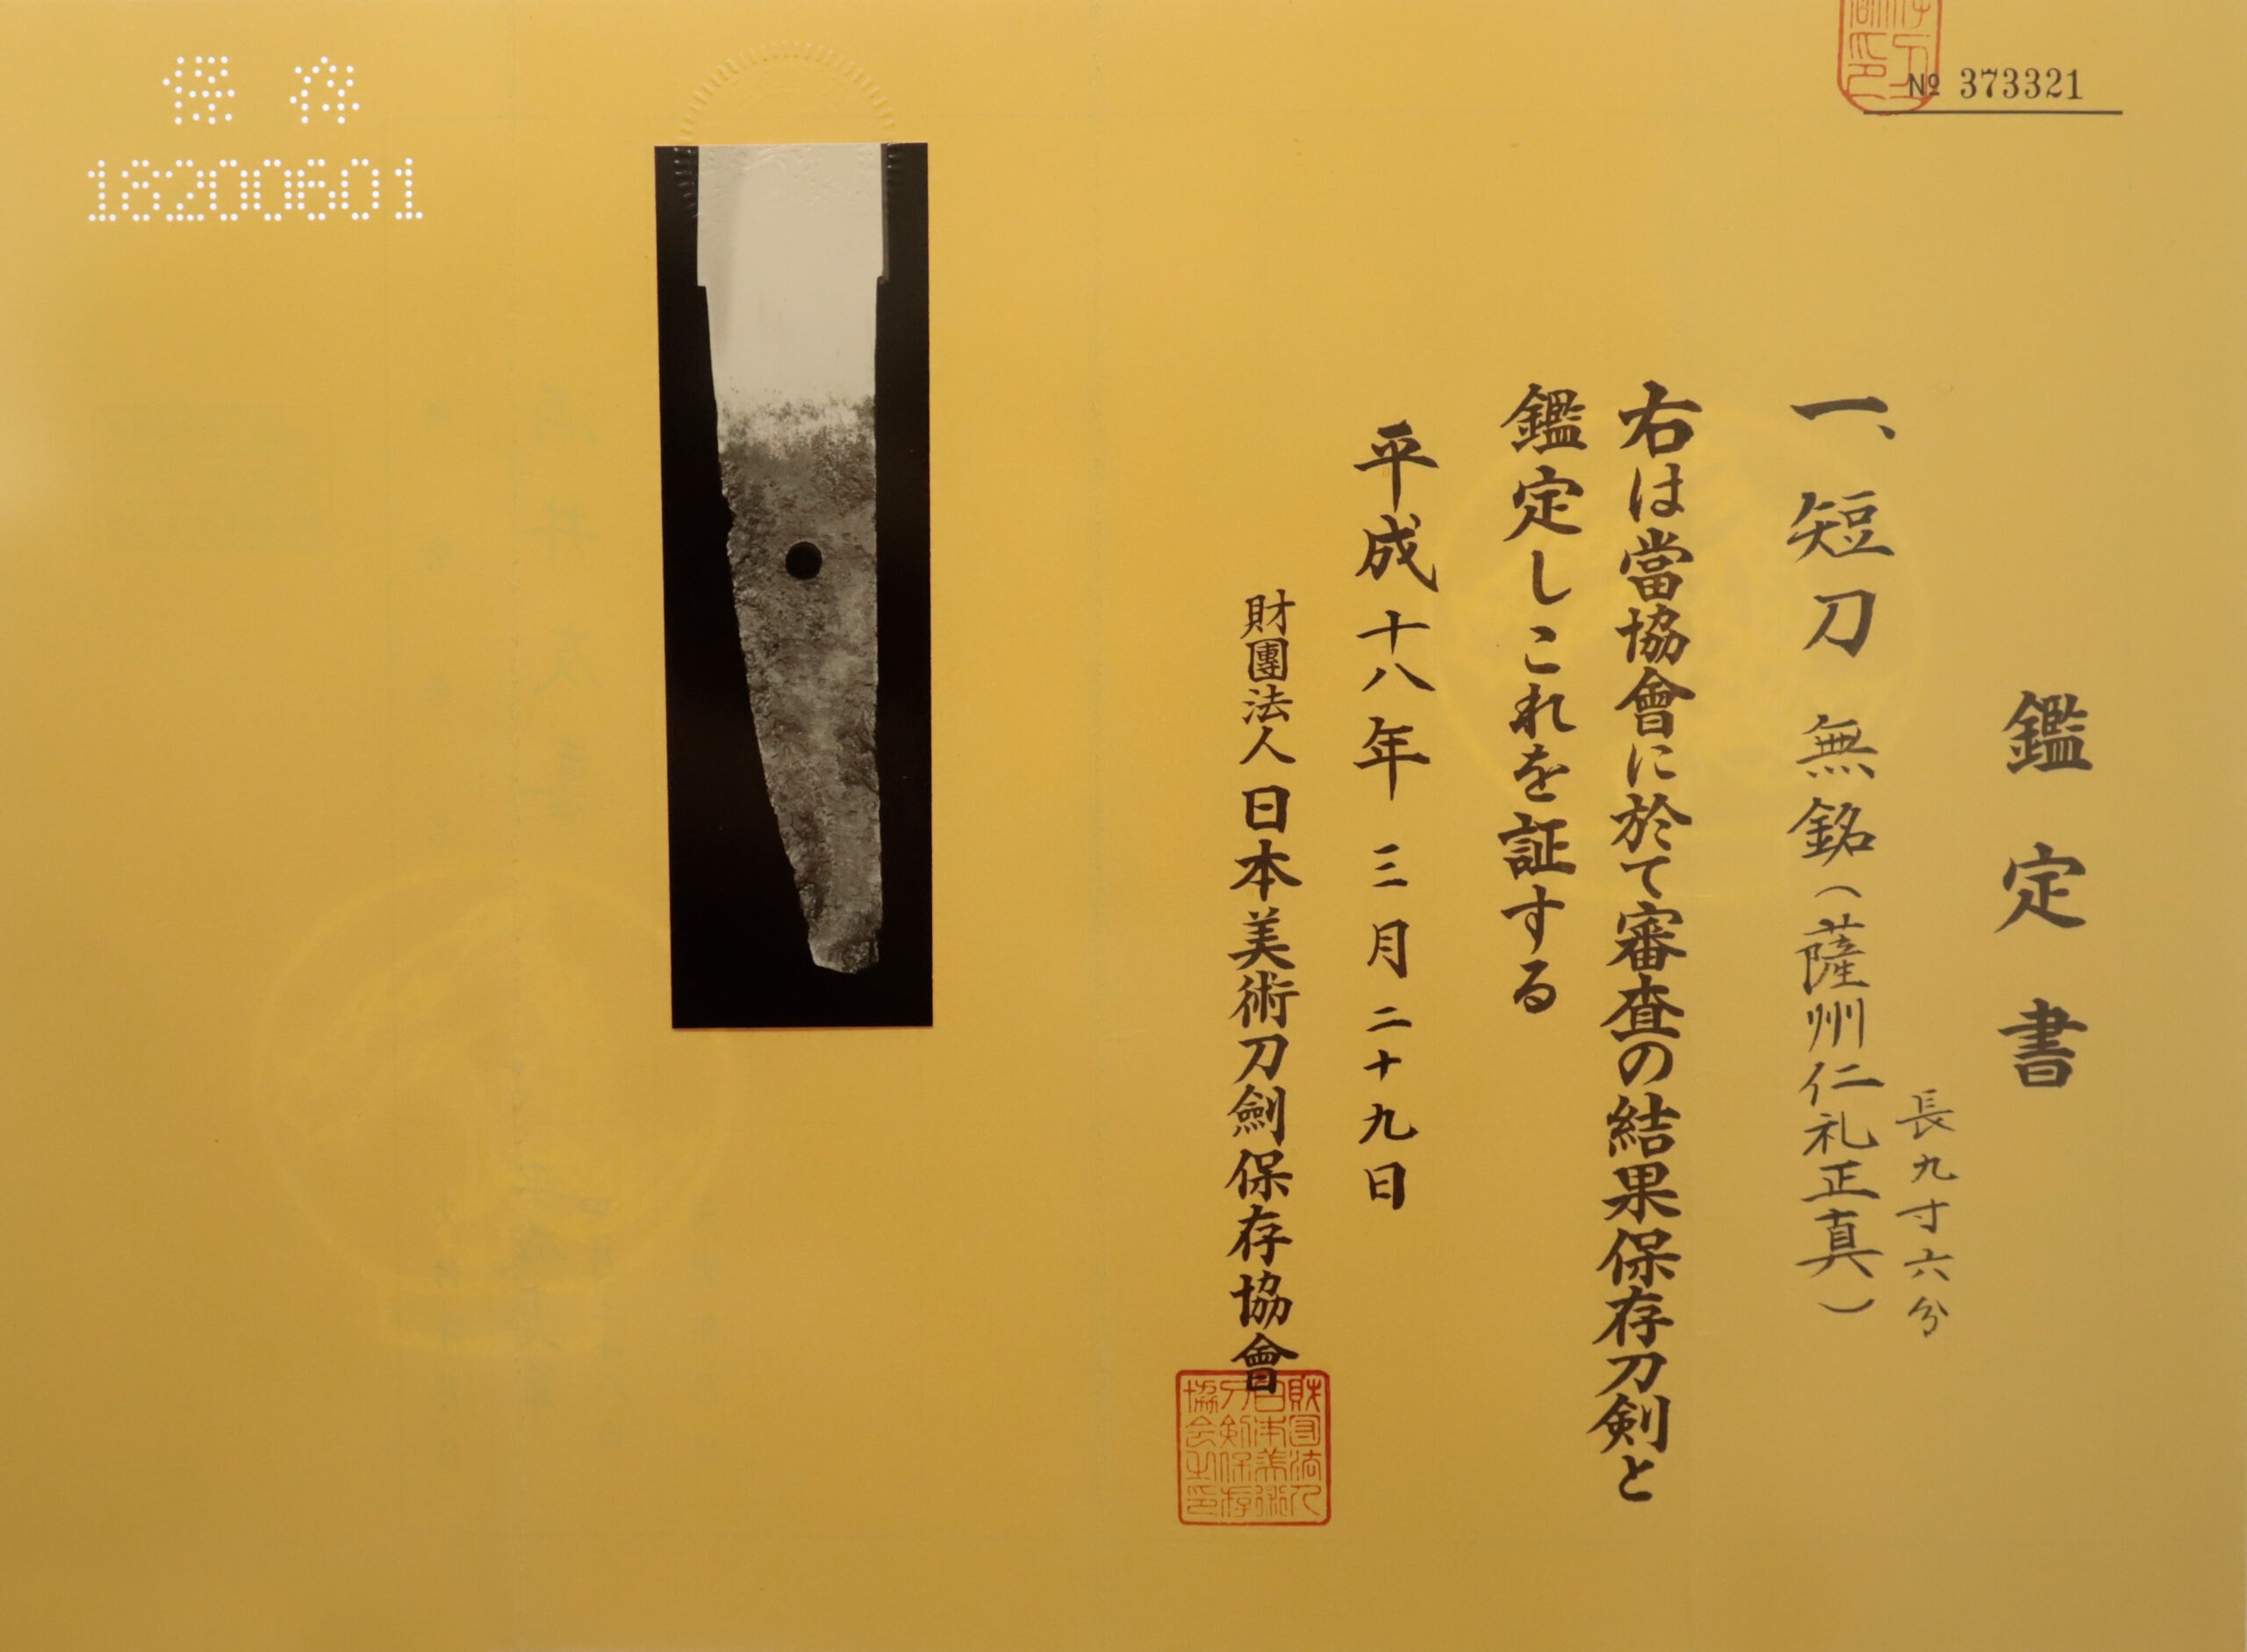 № 373321
鑑定書
長九寸六分
一、短刀 無銘(薩州仁礼正真)
右は當協會に於て審査の結果保存刀剣と
鑑定しこれを証する
平成十八年三月二十九日
財團法人日本美術刀劍保存協會
財団法人日本美術刀剣保存協会之印
保存
18200601